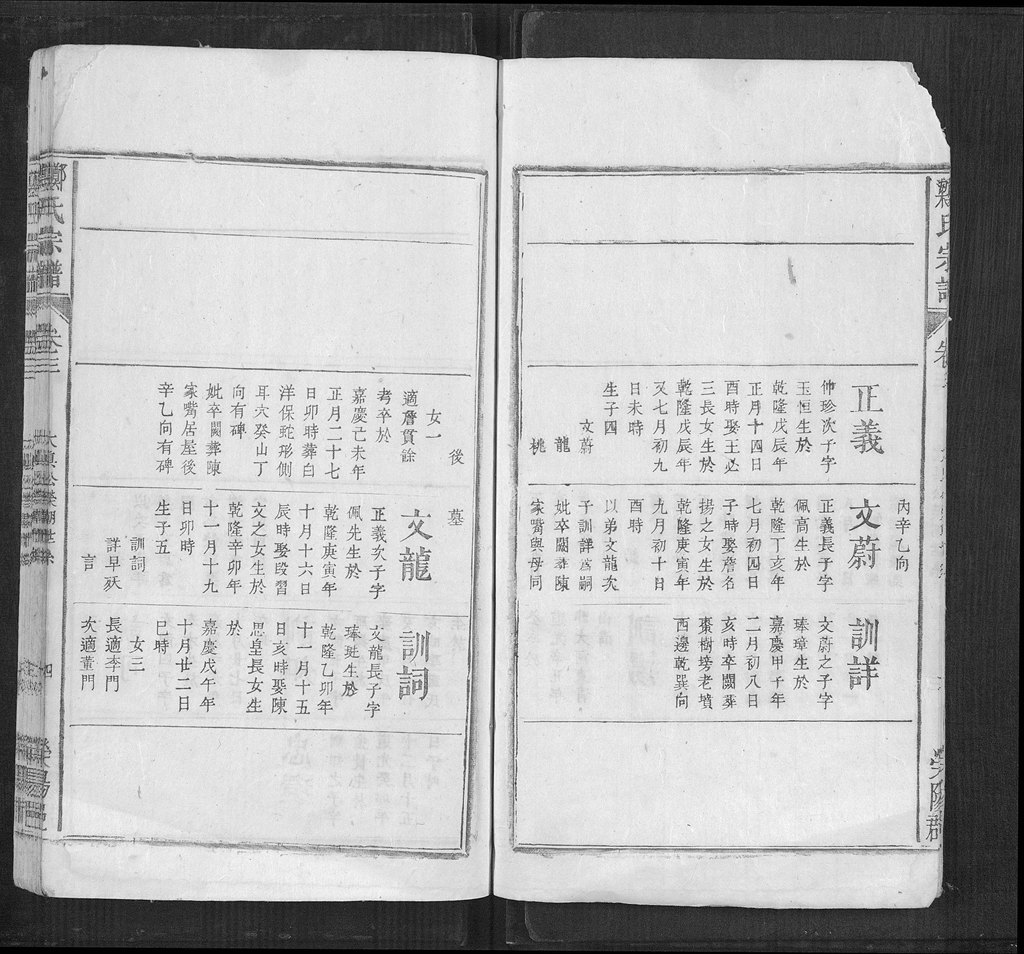 鄭氏宗譜
正義
仲珍次子字
玉恒生於
乾隆戊辰年
正月十四日
酉時娶王必
三長女生於
乾隆戊辰年
又七月初九
日未時
生子四
文蔚
龍
桃
丙辛乙向
文蔚
正義長子字
佩高生於
乾隆丁亥年
七月初四日
子時娶詹名
揚之女生於
乾隆庚寅年
九月初十日
酉時
以弟文龍次
子訓詳為嗣
妣卒闕葬陳
家嘴與母同
訓詳
文蔚之子字
瑧章生於
嘉慶甲子年
二月初八日
亥時卒闕葬
棗樹塝老墳
西邊乾巽向
滎陽郡
後
女一
適詹貫詮
考卒於
嘉慶己未年
正月二十七
日卯時葬白
洋保蛇形側
耳穴癸山丁
向有碑
妣卒闕葬陳
家嘴居屋後
辛乙向有碑
墓
文龍
正義次子字
佩先生於
乾隆庚寅年
十月十六日
辰時娶段習
文之女生於
乾隆辛卯年
十一月十九
日卯時
生子五
訓詞
詳早殀
言
訓詞
文龍長子字
瑧珄生於
乾隆乙卯年
十一月十五
日亥時娶陳
思皇長女生
於
嘉慶戊午年
十月廿二日
巳時
女三
長適李門
次適董門
鄭氏宗譜
卷三